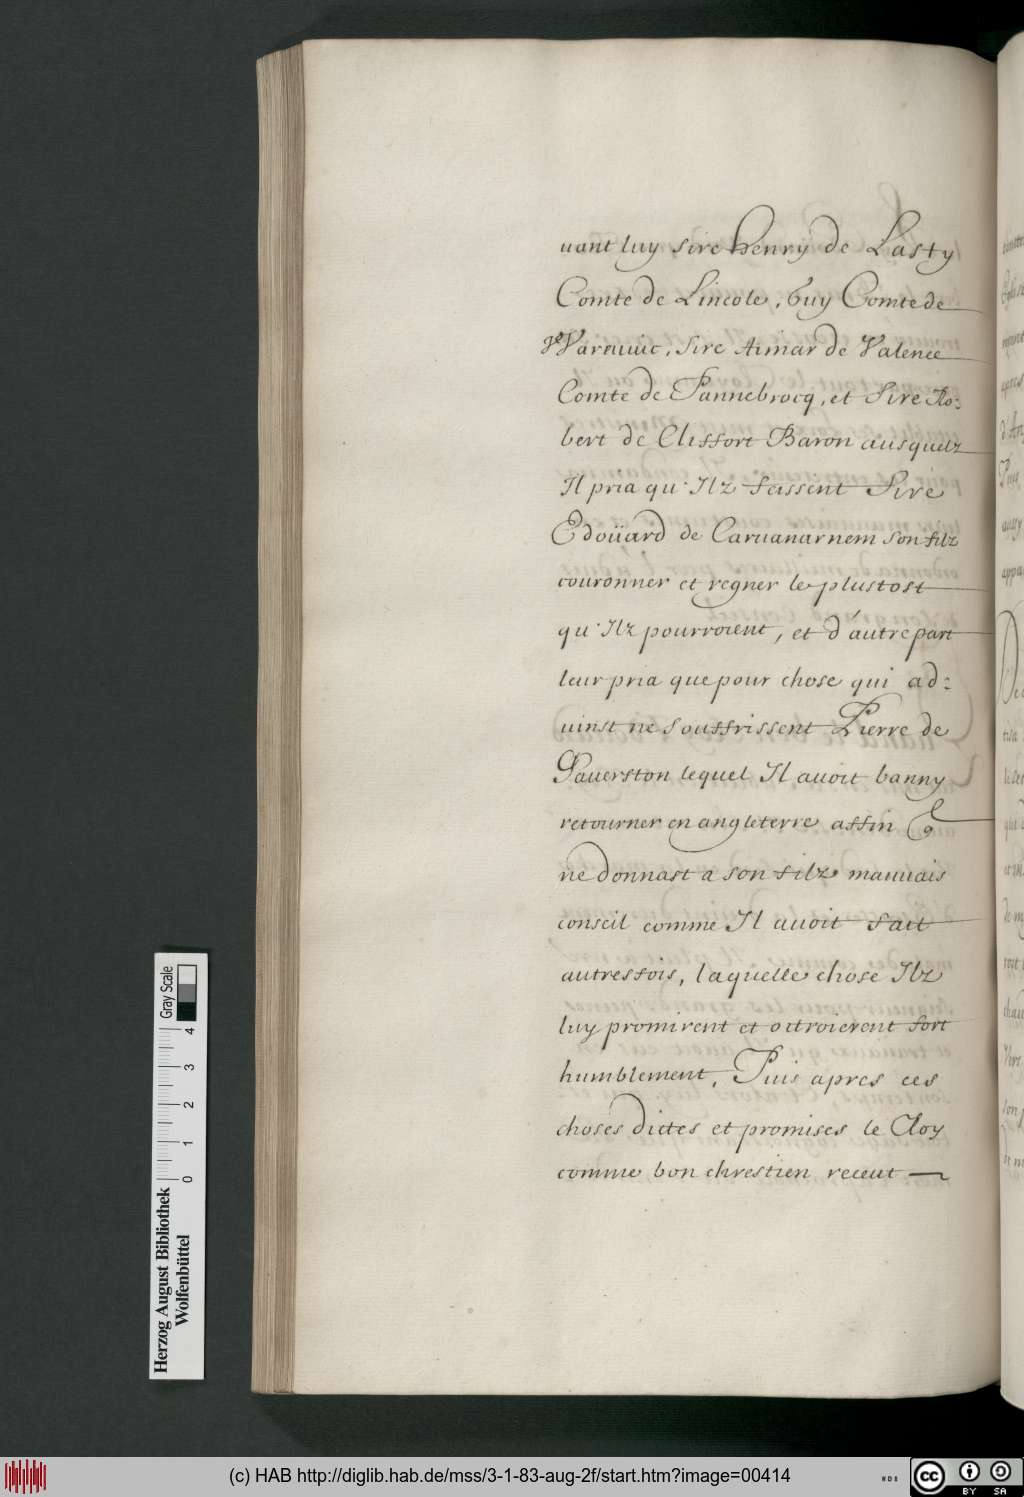 uant luy sire Henry de Lasty
Comte de Lincole, Guy Comte de
Wareuuic, sire Aimar de Valence
Comte de Pannebrocq, et Sire Ro:
bert de Clisfort Baron ausquelz
Il pria qu'Ilz feissent Sire
Edoüard de Caruanarnem son filz
couronner et regner le plustost
qu'Ilz pourroient, et d'autre part
leur pria que pour chose qui ad:
uinst ne souffrissent Pierre de
Gauerston lequel Il auoit banny
retourner en angleterre affin
ne donnast a son filz mauuais
conseil comme Il auoit fait
autresfois, laquelle chose Ilz
luy promirent et octroierent fort
humblement, Puis apres ces
choses dictes et promises le Roy
comme bon chrestien receut
Gray Scale
0 1 2 3 4
Herzog August Bibliothek
Wolfenbüttel
(c) HAB http://diglib.hab.de/mss/3-1-83-aug-2f/start.htm?image=00414
WDB
cc BY SA